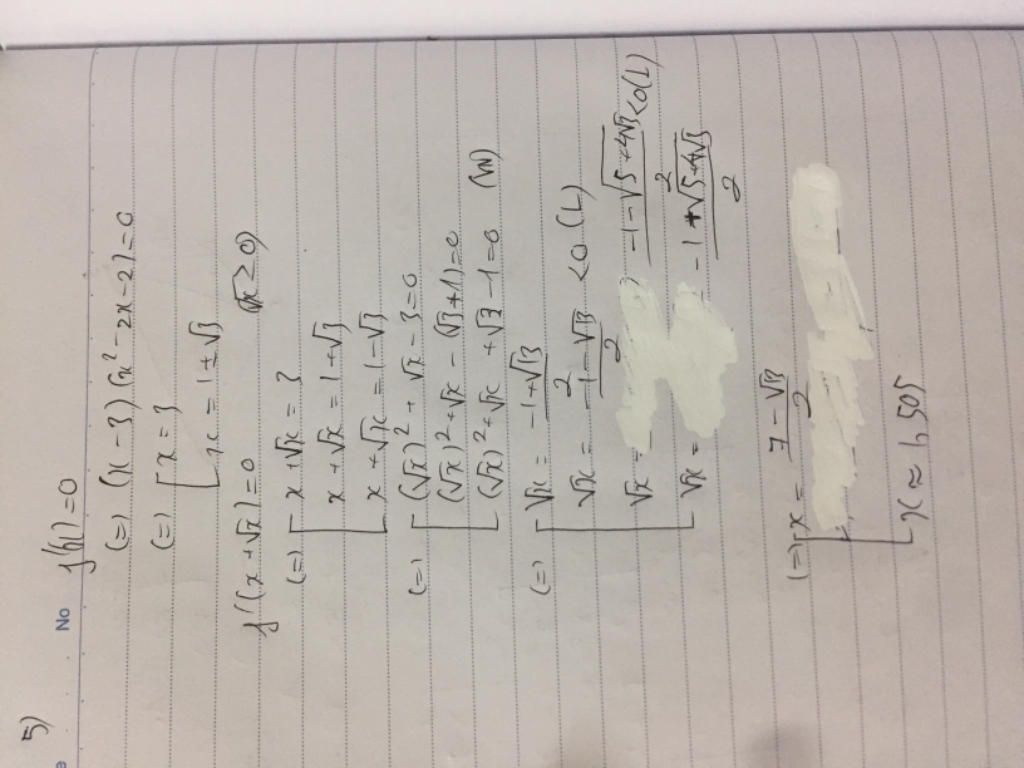 5)
No
f'(x)=0
(=) (x-3)(x²-2x-2)=0
(=) [ x=3
x=1±√3
f'(x+√x)=0 (√x≥0)
(=) [ x+√x=3
x+√x=1+√3
x+√x=1-√3
(=) [ (√x)²+√x-3=0
(√x)²+√x-(√3+1)=0
(√x)²+√x+√3-1=0 (VN)
(=) [ √x = (-1+√13)/2
√x = (-1-√13)/2 <0 (L)
√x = (-1-√5+4√3)/2 <0(L)
√x = (-1+√5+4√3)/2
(=) [ x = (7-√13)/2
x≈1,505